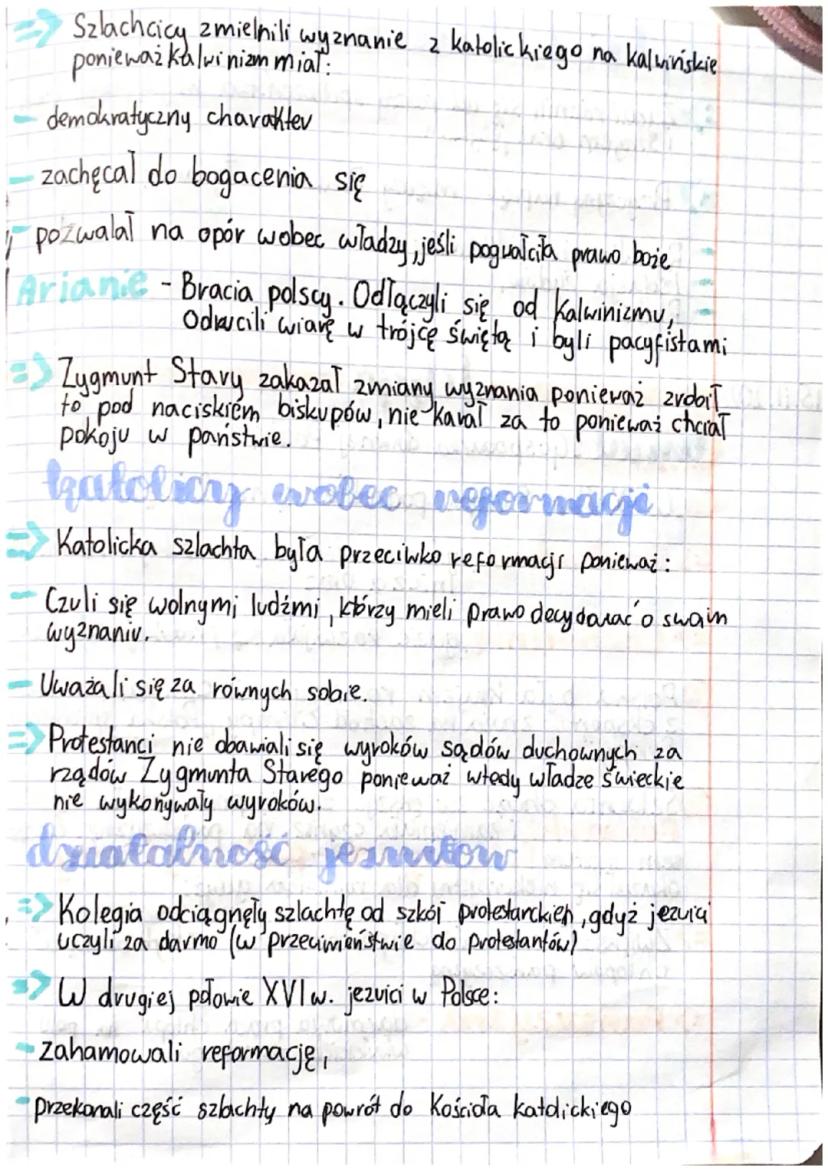 => Szlachcicy zmielnili wyznanie z katolickiego na kalwińskie
ponieważ kalwinizm miał:
- demokratyczny charakter
- zachęcał do bogacenia się
- pozwalał na opór wobec władzy, jeśli pogwałciła prawo boże
Arianie - Bracia polscy. Odłączyli się od Kalwinizmu,
Odrucili wiarę w trójcę świętą i byli pacyfistami
=> Zygmunt Stary zakazał zmiany wyznania ponieważ zrobił
to pod naciskiem biskupów, nie karał za to ponieważ chciał
pokoju w państwie.
katolicy wobec reformacji
=> Katolicka szlachta była przeciwko reformacji ponieważ:
- Czuli się wolnymi ludźmi, którzy mieli prawo decydować o swoim
wyznaniu.
- Uważali się za równych sobie.
=> Protestanci nie obawiali się wyroków sądów duchownych za
rządów Zygmunta Starego ponieważ wtedy władze świeckie
nie wykonywały wyroków.
działalność jezuitów
=> Kolegia odciągnęły szlachtę od szkół protestanckich, gdyż jezuici
uczyli za darmo (w przeciwieństwie do protestantów)
=> W drugiej połowie XVI w. jezuici w Polsce:
- zahamowali reformację,
- Przekonali część szlachty na powrót do Kościoła katolickiego